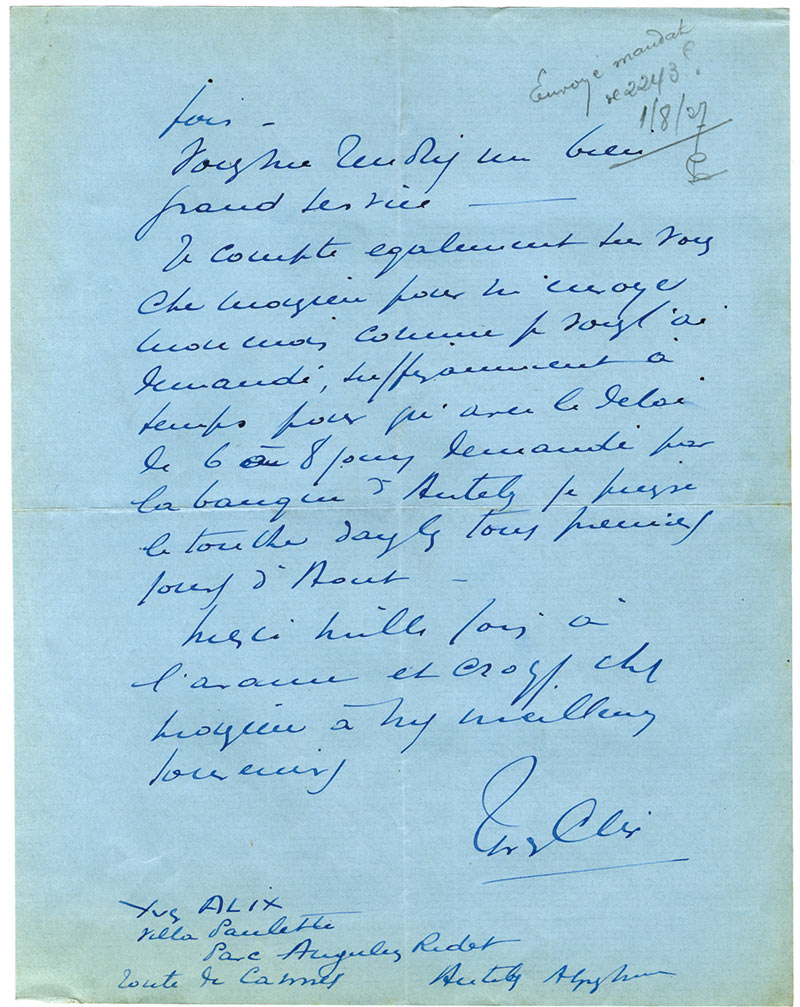 Envoyé mandat
de 2243 f.
1/8/27
fois -
Vous me rendrez un bien
grand service —
Je compte egalement sur vous
cher monsieur pour m'envoyer
mon mois comme je vous l'ai
demandé, suffisamment à
temps pour qu'avec le delai
de 6 à 8 jours demandé par
la banque d'Antibes je puisse
le toucher dans les tous premiers
jours d'Aout -
Merci mille fois à
l'avance et croyez cher
monsieur à mes meilleurs
souvenirs
Yves Alix
Yves ALIX
Villa Paulette
Parc Redet
Route de Cannes Antibes Alpes Mmes